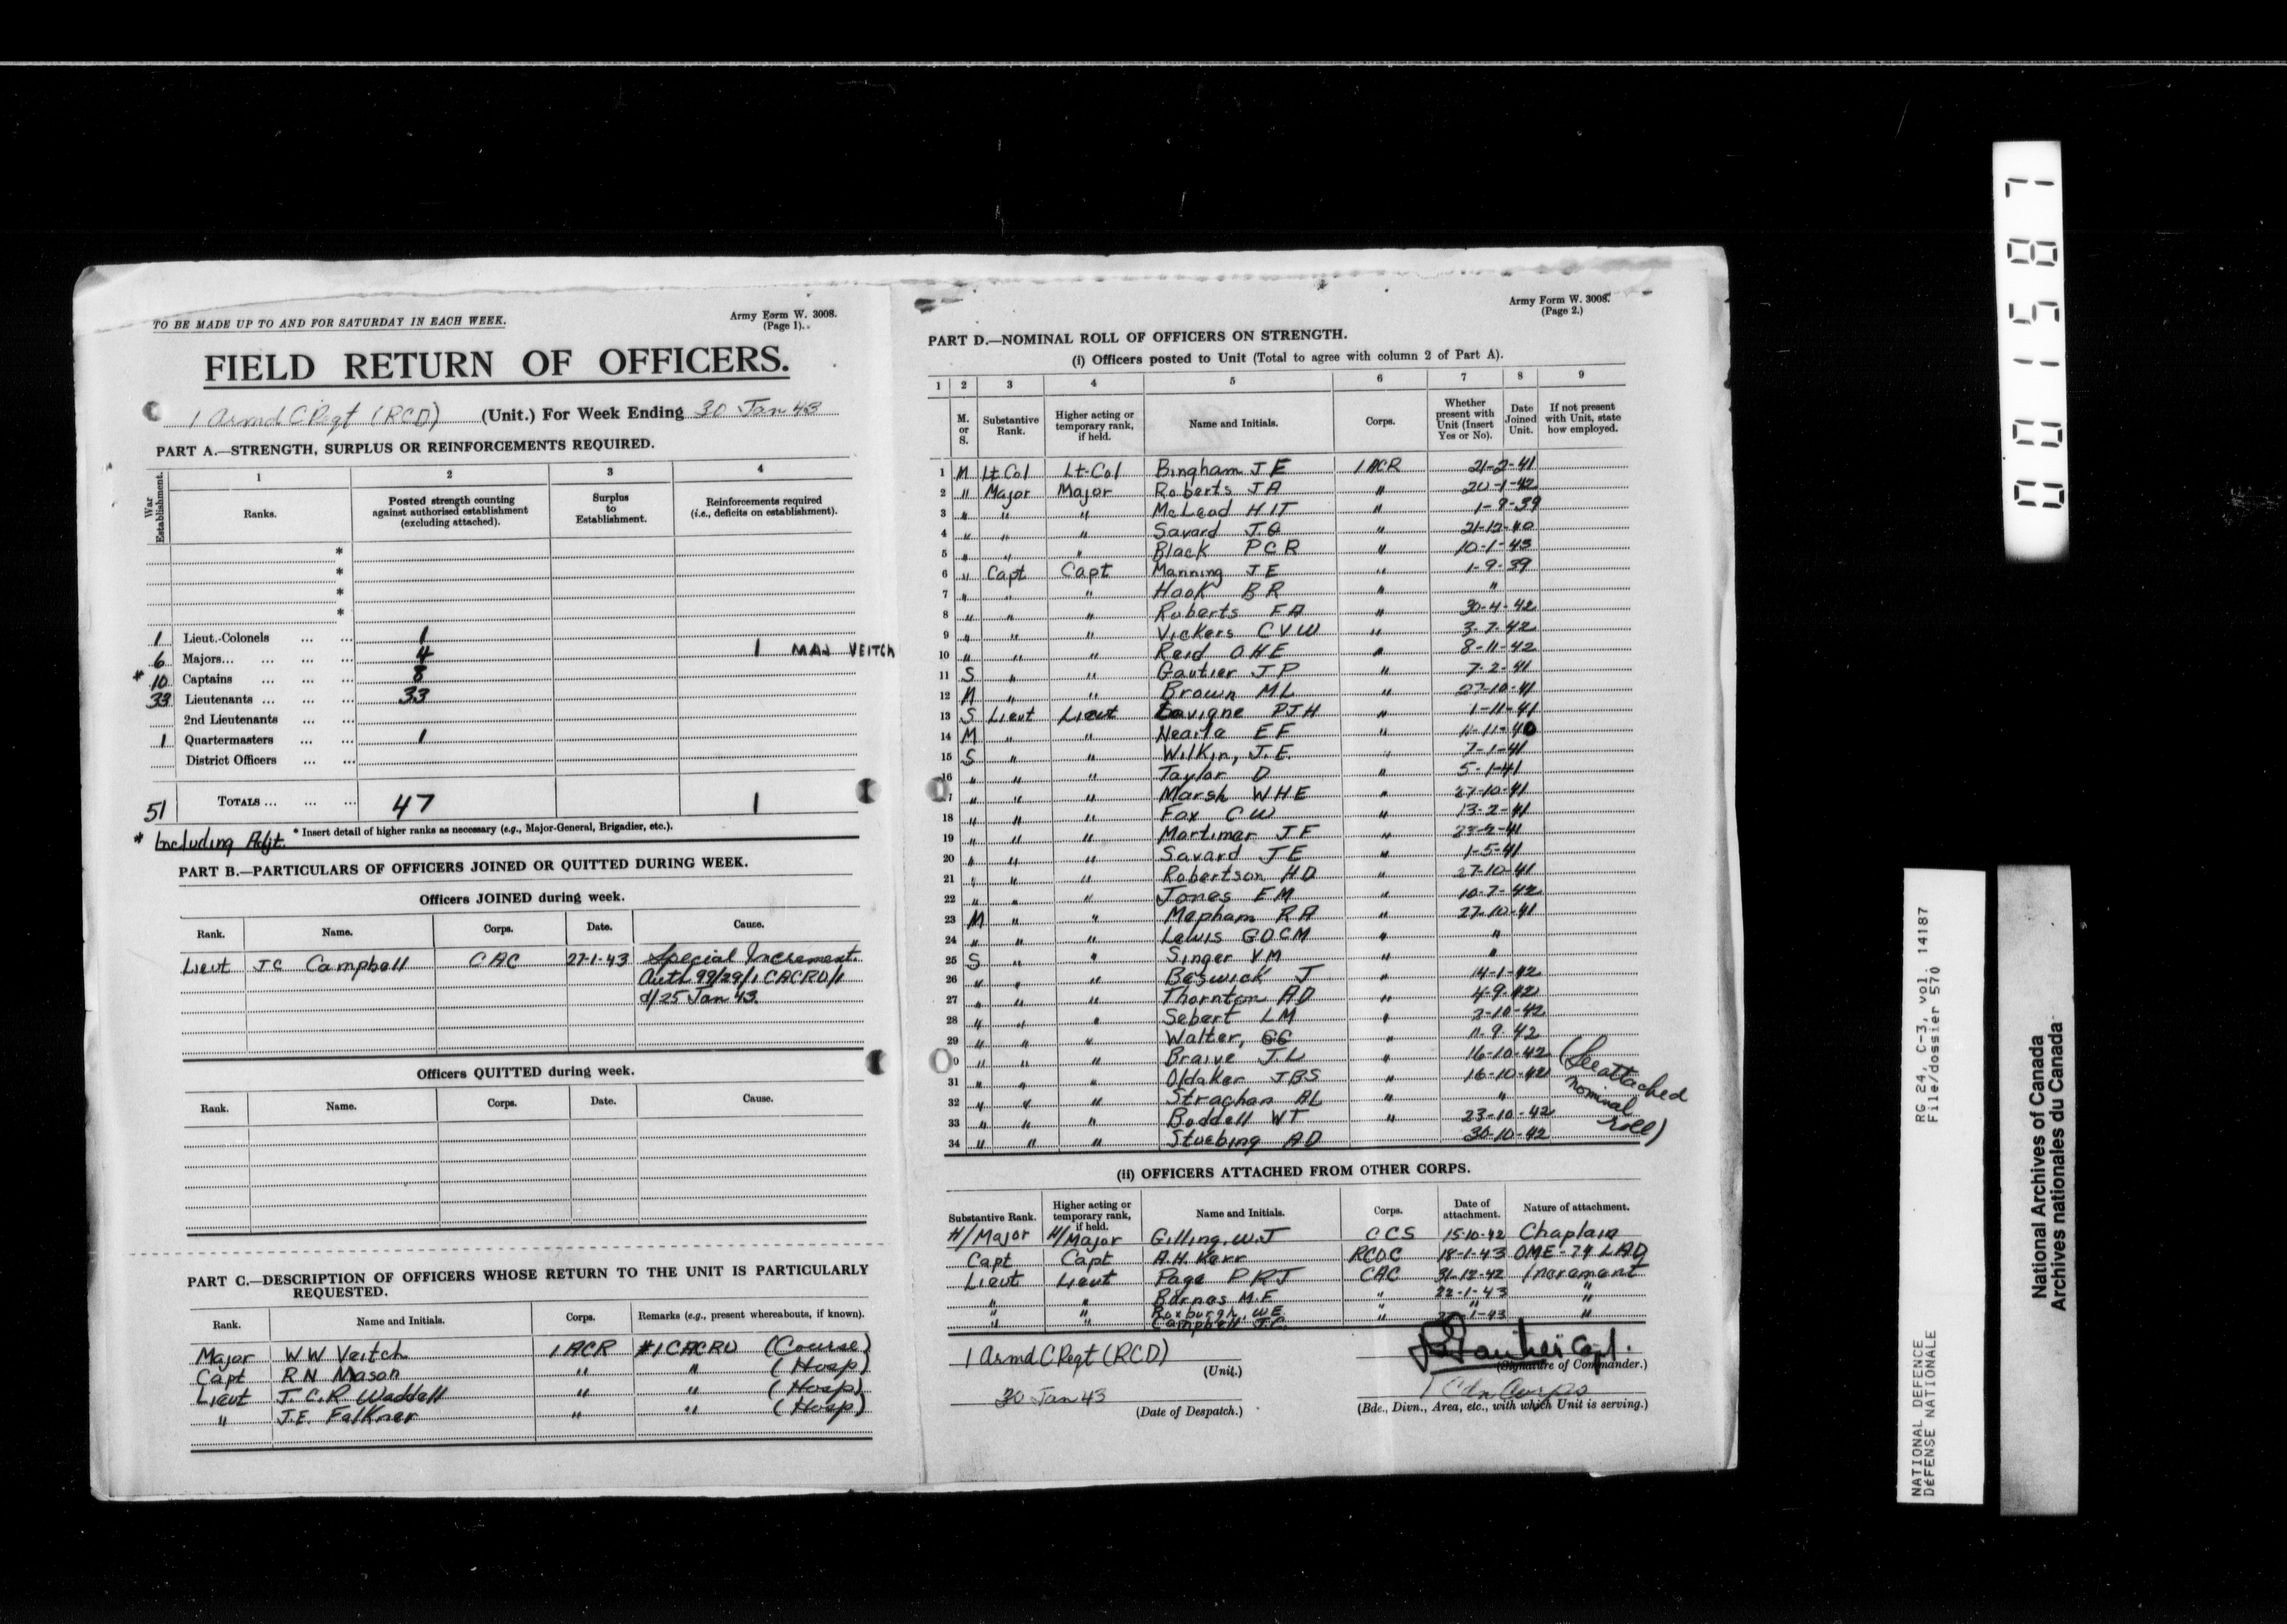 TO BE MADE UP TO AND FOR SATURDAY IN EACH WEEK.
Army Form W. 3008.
(Page 1).
FIELD RETURN OF OFFICERS.
1 Armd C Regt (RCD) (Unit.) For Week Ending 30 Jan 43
PART A.—STRENGTH, SURPLUS OR REINFORCEMENTS REQUIRED.
War Establishment.
1 2 3 4
Ranks. Posted strength counting against authorised establishment (excluding attached). Surplus to Establishment. Reinforcements required (i.e., deficits on establishment).
*
*
*
*
1 Lieut.-Colonels ... ... 1
6 Majors... ... ... ... 4 1 MAJ VEITCH
* 10 Captains ... ... ... 8
33 Lieutenants ... ... ... 33
2nd Lieutenants ... ...
1 Quartermasters ... ... 1
District Officers ... ...
51 TOTALS ... ... ... 47 1
* Including Adjt. * Insert detail of higher ranks as necessary (e.g., Major-General, Brigadier, etc.).
PART B.—PARTICULARS OF OFFICERS JOINED OR QUITTED DURING WEEK.
Officers JOINED during week.
Rank. Name. Corps. Date. Cause.
Lieut J C Campbell CAC 27-1-43 Special Increment.
Auth 99/29/1 CACRU/1
d/25 Jan 43.
Officers QUITTED during week.
Rank. Name. Corps. Date. Cause.
PART C.—DESCRIPTION OF OFFICERS WHOSE RETURN TO THE UNIT IS PARTICULARLY
REQUESTED.
Rank. Name and Initials. Corps. Remarks (e.g., present whereabouts, if known).
Major W W Veitch 1 ACR #1 CACRU (Course)
Capt R N Mason " " (Hosp)
Lieut J. C. R Waddell " " (Hosp)
" J.E. Falkner " " (Hosp)
Army Form W. 3008.
(Page 2.)
PART D.—NOMINAL ROLL OF OFFICERS ON STRENGTH.
(i) Officers posted to Unit (Total to agree with column 2 of Part A).
1 2 3 4 5 6 7 8 9
M. or S. Substantive Rank. Higher acting or temporary rank, if held. Name and Initials. Corps. Whether present with Unit (Insert Yes or No). Date Joined Unit. If not present with Unit, state how employed.
1 M Lt Col Lt-Col Bingham J E 1 ACR 21-2-41
2 " Major Major Roberts J A " 20-1-42
3 " " " McLeod H I T " 1-9-39
4 " " " Savard J.G " 21-12-40
5 " " " Black P C R " 10-1-43
6 " Capt Capt Manning J E " 1-9-39
7 " " " Hook B R " "
8 " " " Roberts F A " 30-4-42
9 " " " Vickers C V W " 3-7-42
10 " " " Reid O H E " 8-11-42
11 S " " Gautier J P " 7-2-41
12 M " " Brown M L " 27-10-41
13 S Lieut Lieut Lavigne P J H " 1-11-41
14 M " " Nearla E F " 11-11-40
15 S " " Wilkin, J.E. " 7-1-41
16 " " " Taylor D " 5-1-41
17 " " " Marsh W H E " 27-10-41
18 " " " Fox C W " 13-2-41
19 " " " Mortimer J F "
20 " " " Savard J E " 1-5-41
21 " " " Robertson H D " 27-10-41
22 " " " Jones E M " 10-7-42
23 M " " Mepham R A " 27-10-41
24 " " " Lewis G O C M " "
25 S " " Singer V M " "
26 " " " Beswick J " 14-1-42
27 " " " Thornton A D " 4-9-42
28 " " " Sebert L M " 2-10-42
29 " " " Walter, G C " 11-9-42
30 " " " Braive J. L " 16-10-42
31 " " " Oldaker J B S " 16-10-42
32 " " " Strachan A L " "
33 " " " Boddell W T " 23-10-42
34 " " " Stuebing A D 30-10-42
(See attached
nominal
roll)
(ii) OFFICERS ATTACHED FROM OTHER CORPS.
Substantive Rank. Higher acting or temporary rank, if held. Name and Initials. Corps. Date of attachment. Nature of attachment.
H/Major H/Major Gilling, W.J CCS 15-10-42 Chaplain
Capt Capt A.H. Kerr RCOC 18-1-43 OME - 74 LAD
Lieut Lieut Page P R J CAC 31-12-42 Increment
" " Barnes M.F " 22-1-43 "
" " Roxburgh W E " "
" " Campbell J.C. " 27-1-43 "
1 Armd C Regt (RCD)
(Unit.)
Gautier Capt.
(Signature of Commander.)
30 Jan 43
(Date of Despatch.)
1 Cdn Corps
(Bde., Divn., Area, etc., with which Unit is serving.)
001587
NATIONAL DEFENCE RG 24, C-3, vol. 14187
DÉFENSE NATIONALE File/dossier 570
National Archives of Canada
Archives nationales du Canada